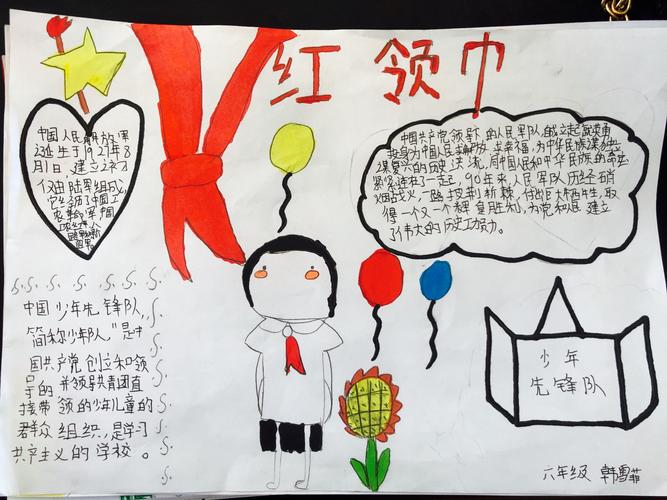 红领巾
中国人民解放军
诞生于1927年8
月1日,建立之初
仅由陆军组成,
中国共产党领导下的人民军队,自成立起就英勇
投身为中国人民求解放、求幸福,为中华民族谋独立、
谋复兴的历史洪流,同中国人民和中华民族的命运
紧紧连在了一起,90年来,人民军队历经硝
烟战火,一路披荆斩棘,付出巨大牺牲,取
得一个又一个辉皇胜利,为党和人民建立
了伟大的历史功勋。
S. S. S. S. S. S. S.
中国少年先锋队,
简称少年队"是中
国共产党创立和领
导的并领导共青团直
接带领的少年儿童的
群众组织,是学习
共产主义的学校。
少年
先锋队
六年级 韩雪菲